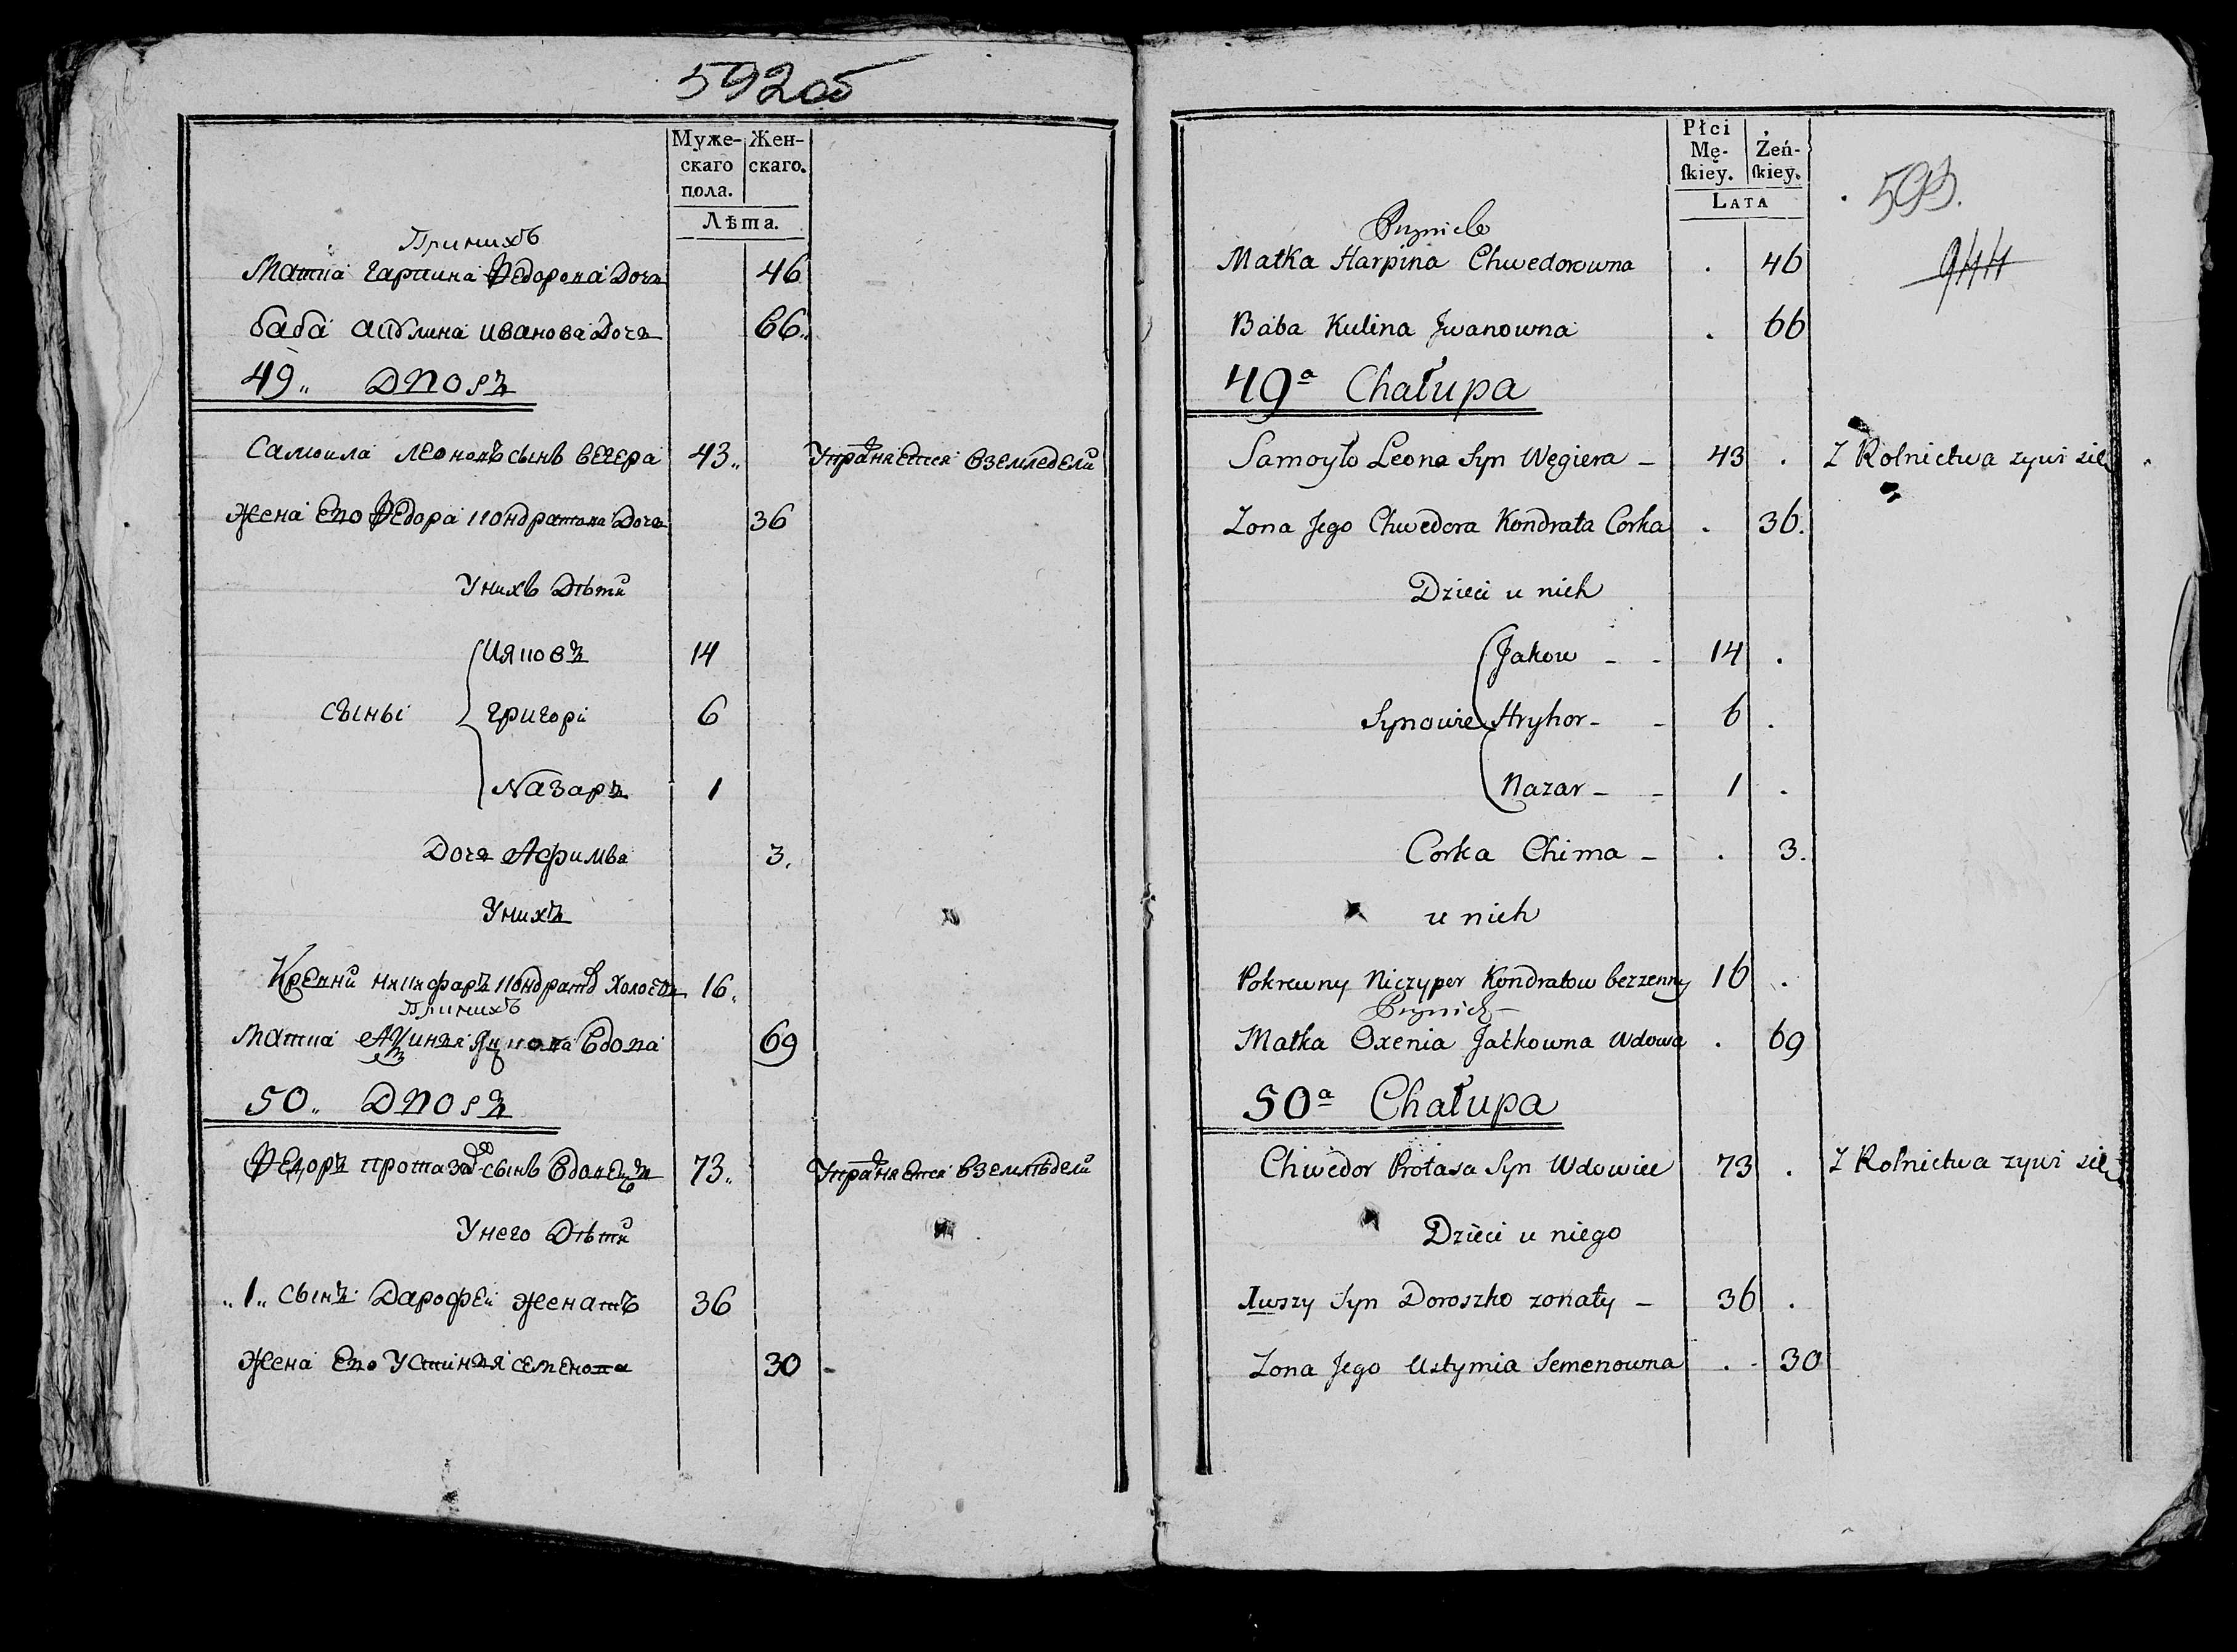 592об
Муже-
скаго
пола.
Жен-
скаго.
Лѣта.
При нихъ
Матка гарпина Федорова Доч 46
баба акулина иванова Доч 66
49 Дворъ
Самоила леоновъ сынъ вегера 43 Упражняется в земледели
жена его Федора кондратова Доч 36
У нихъ Дѣти
сыны
ияковъ 14
григори 6
Назаръ 1
Доч Афимва 3.
У нихъ
кондратов холостъ 16
При нихъ
Матка Вдова 69
50 Дворъ
Федоръ сынъ Вдовецъ 73 Упражняется в земледели
У него Дѣти
1 сынъ Дарофей женатъ 36
жена его Устиния семенова 30
Płci
Mę-
ſkiey.
Żeń-
ſkiey.
LATA
593.
944
Przynich
Matka Harpina Chwedorowna . 46
Baba Kulina Jwanowna . 66
49a Chałupa
Samoyło Leona Syn Węgiera – 43 . Z Rolnictwa zywi się
Zona Jego Chwedora Kondrata Corka . 36.
Dzieci u nich
Synowie
Jakow - - 14 .
Hryhor - - 6 .
Nazar - - 1 .
Corka Chima – . 3.
u nich
Pokrewny Niczyper Kondratow bezzenny 16 .
Przynich
Matka Oxenia Jatkowna Wdowa . 69
50a Chałupa
Chwedor Protasa Syn Wdowiec 73 . Z Rolnictwa zywi się
Dzieci u niego
Iwszy Syn Doroszko zonaty – 36 .
Zona Jego Ustymia Semenowna . - 30